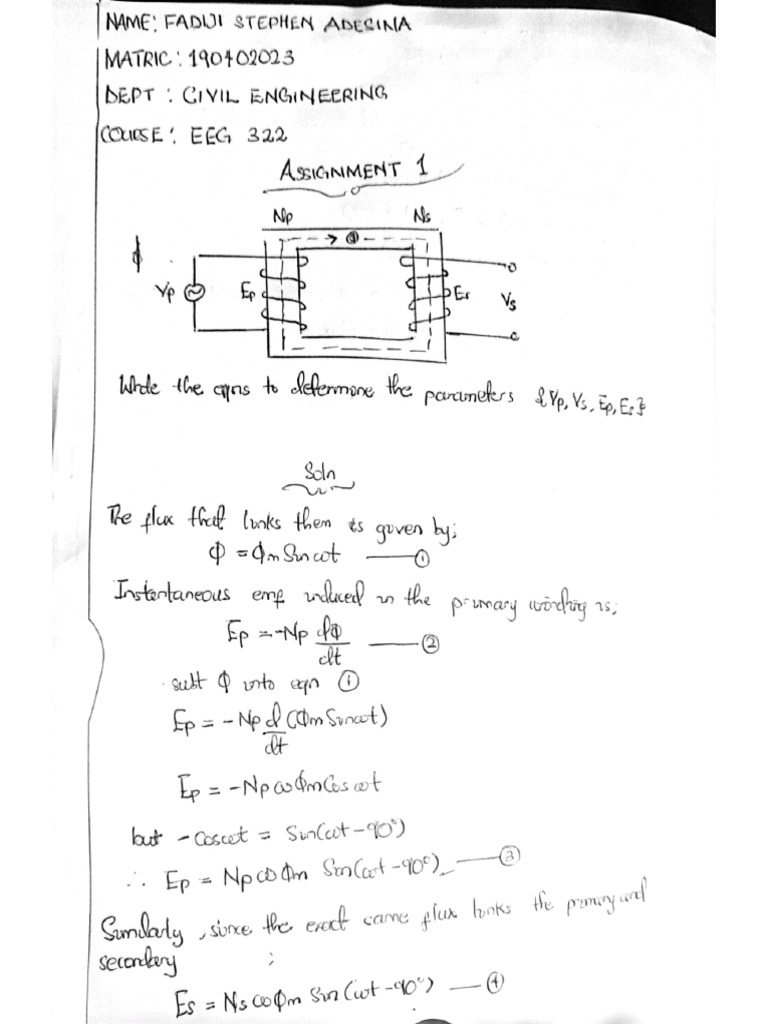 NAME: FADIJI STEPHEN ADESINA
MATRIC: 190402023
DEPT : CIVIL ENGINEERING
COURSE: EEG 322
ASSIGNMENT 1
Np Ns
Φ
Vp Ep Es Vs
Write the eqns to determine the parameters {Vp, Vs, Ep, Es}
Soln
The flux that links them is given by;
Φ = Φm Sin ωt —— ①
Instantaneous emf induced in the primary winding is;
Ep = -Np dΦ/dt —— ②
subt Φ into eqn ①
Ep = -Np d/dt (Φm Sin ωt)
Ep = -Np ω Φm Cos ωt
but - Cos ωt = Sin(ωt - 90°)
∴ Ep = Np ω Φm Sin(ωt - 90°) —— ③
Similarly, since the exact same flux links the primary and
secondary ;
Es = Ns ω Φm Sin(ωt - 90°) —— ④